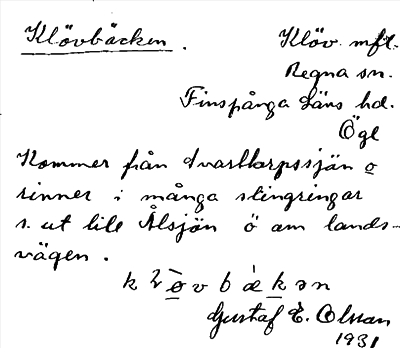 Klövbäcken. Klöv mfl.
Regna sn.
Finspånga läns hd.
Ögl
Kommer från Svarttorpssjön o
rinner i många slingringar
s. ut till Ålsjön ö om lands-
vägen.
Gustaf E. Olsson
1931